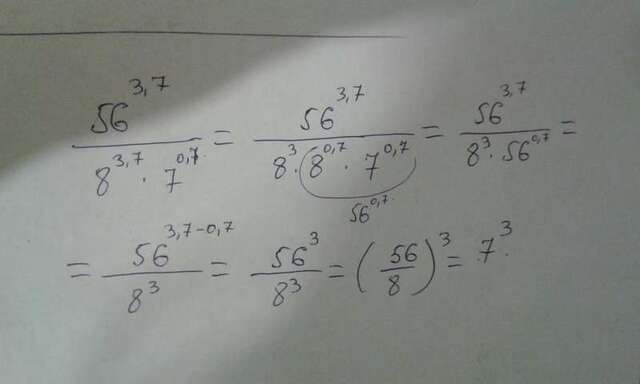 56^{3,7} / (8^{3,7} · 7^{0,7}) = 56^{3,7} / (8^3 · 8^{0,7} · 7^{0,7}) = 56^{3,7} / (8^3 · 56^{0,7}) =
56^{0,7}
= 56^{3,7-0,7} / 8^3 = 56^3 / 8^3 = (56 / 8)^3 = 7^3.